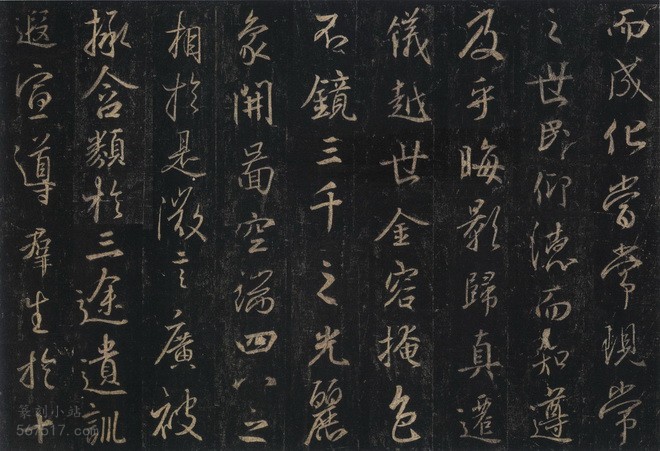 而成化當常現常
之世民仰德而知遵
及乎晦影歸真遷
儀越世金容掩色
不鏡三千之光麗
象開圖空端四八之
相於是微言廣被
拯含類於三途遺訓
遐宣導群生於十
篆刻小站
567517.com